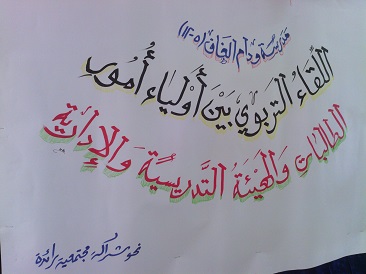 مدرسة ودام الغاف (٥-١٢)
اللقاء التربوي بَيْنَ أَوْلياءِ أُمُور
الطالبات وَالهَيْئَةُ التَّدريسيَّة وَالإِدَارِيَّة
نحو شراكة مجتمعية رائدة